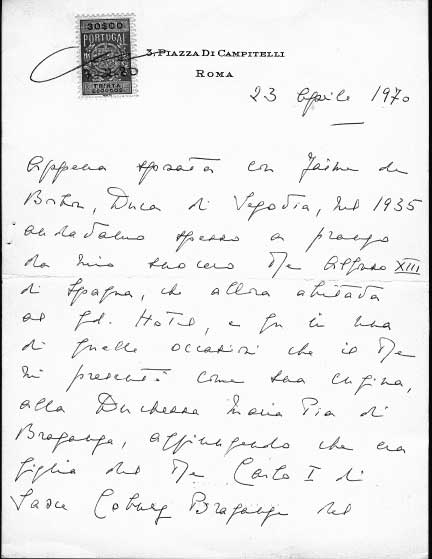 30$00
PORTUGAL
TRINTA
ESCUDOS
3, PIAZZA DI CAMPITELLI
ROMA
23 Aprile 1970
Appena sposata con Jaime de
Borbon, Duca di Segovia, nel 1935
andavamo spesso a pranzo
da mio suocero Re Alfonso XIII
di Spagna, che allora abitava
al Gd. Hotel, e fu in una
di quelle occasioni che il Re
mi presentò come sua cugina,
alla Duchessa Maria Pia di
Braganza, aggiungendo che era
figlia del Re Carlo I di
Saxe Coburg Braganza del